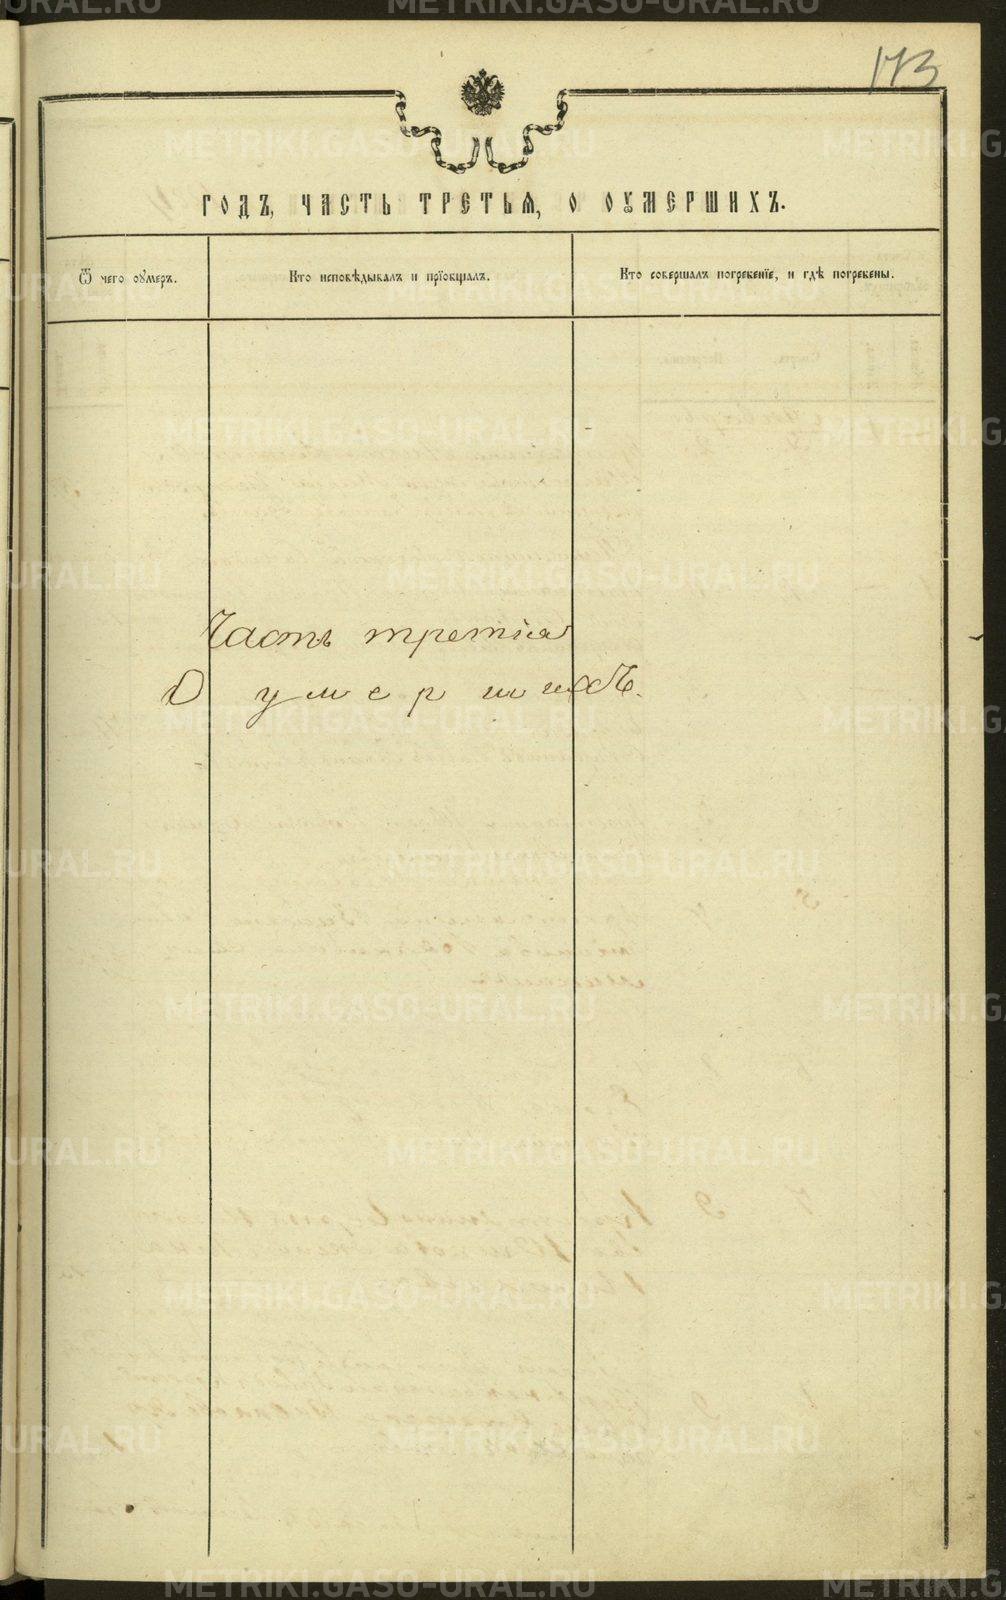 173
ГОДЪ, ЧАСТЬ ТРЕТЬЯ, О ОУМЕРШИХЪ.
Ѿ чего оумеръ.
Кто исповѣдывалъ и прїобщалъ.
Кто совершалъ погребенїе, и гдѣ погребены.
Часть третія
О умершихъ.
METRIKI.GASO-URAL.RU